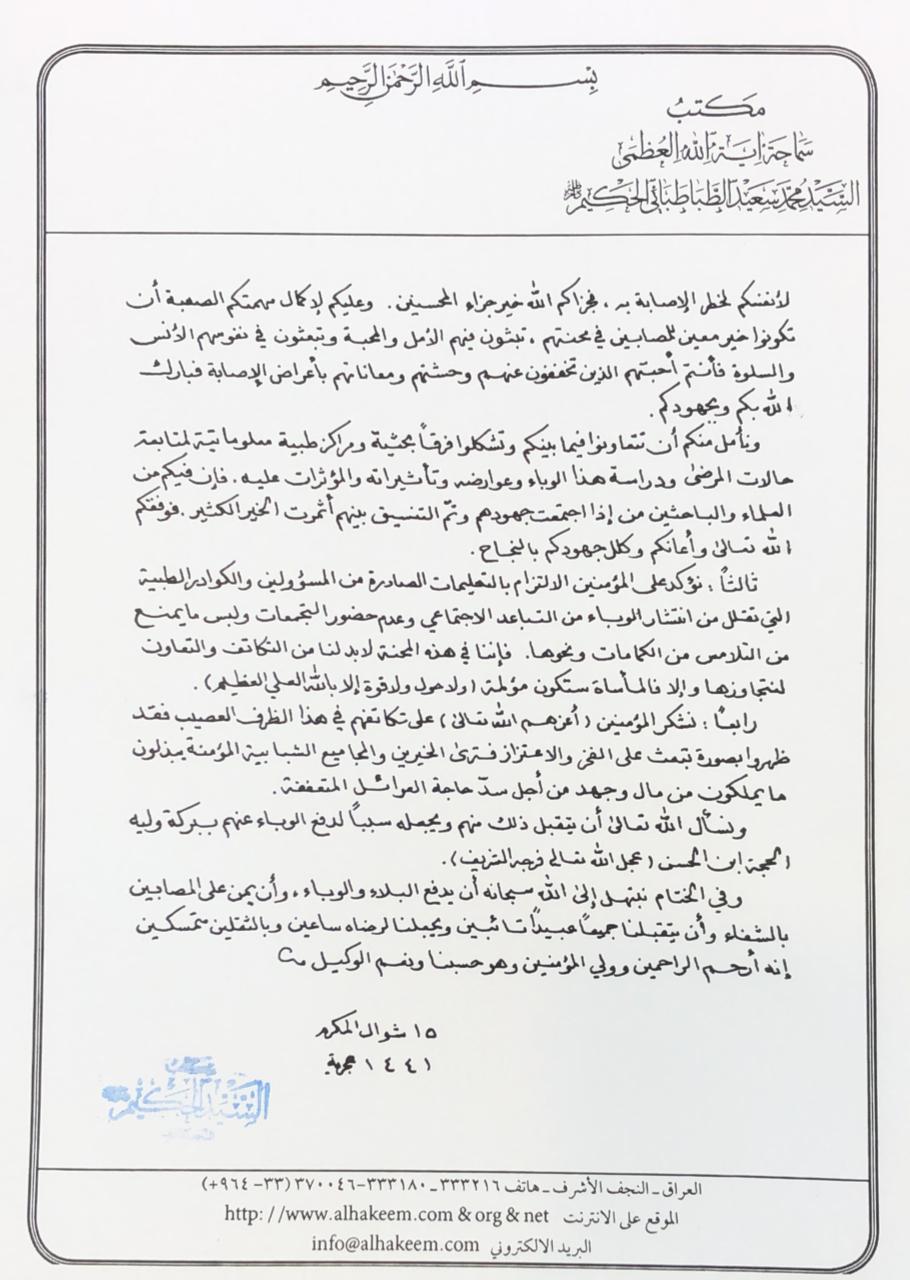 بِسْمِ اللَّهِ الرَّحْمَنِ الرَّحِيمِ
مكتبُ
سماحة آية الله العظمى
السيد محمد سعيد الطباطبائي الحكيم
لأنفسكم لخطر الإصابة به ، فجزاكم الله خير جزاء المحسنين . وعليكم لإكمال مهمتكم الصعبة أن
تكونوا خير معين للمصابين في محنتهم ، تبثون فيهم الأمل والمحبة وتبعثون في نفوسهم الأنس
والسلوة فأنتم أحبتهم الذين تخففون عنهم وحشتهم ومعاناتهم بأعراض الإصابة فبارك
الله بكم وبجهودكم .
ونأمل منكم أن تتعاونوا فيما بينكم وتشكلوا فرقاً بحثية ومراكز طبية معلوماتية لمتابعة
حالات المرضى ودراسة هذا الوباء وعوارضه وتأثيراته والمؤثرات عليه . فإن فيكم من
العلماء والباحثين من إذا اجتمعت جهودهم وتمّ التنسيق بينهم أثمرت الخير الكثير . فوفقكم
الله تعالى وأعانكم وكلل جهودكم بالنجاح .
ثالثاً : نؤكد على المؤمنين الالتزام بالتعليمات الصادرة من المسؤولين والكوادر الطبية
التي تقلل من انتشار الوباء من التباعد الاجتماعي وعدم حضور التجمعات ولبس ما يمنع
من التلامس من الكمامات ونحوها . فإننا في هذه المحنة لابد لنا من التكاتف والتعاون
لنتجاوزها وإلا فالمأساة ستكون مؤلمة (ولا حول ولا قوة إلا بالله العلي العظيم) .
رابعاً : نشكر المؤمنين (أعزهم الله تعالى) على تكاتفهم في هذا الظرف العصيب فقد
ظهروا بصورة تبعث على الفخر والاعتزاز فترى الخيرين والمجاميع الشبابية المؤمنة يبذلون
ما يملكون من مال وجهد من أجل سدّ حاجة العوائل المتعففة .
ونسأل الله تعالى أن يتقبل ذلك منهم ويجعله سبباً لدفع الوباء عنهم ببركة وليه
الحجة ابن الحسن (عجل الله تعالى فرجه الشريف) .
وفي الختام نبتهل إلى الله سبحانه أن يدفع البلاء والوباء ، وأن يمن على المصابين
بالشفاء وأن يتقبلنا جميعاً عبيداً تائبين ويجعلنا لرضاه ساعين وبالثقلين متمسكين
إنه أرحم الراحمين وولي المؤمنين وهو حسبنا ونعم الوكيل
١٥ شوال المكرم
١٤٤١ هجرية
السيد الحكيم
العراق ـ النجف الأشرف ـ هاتف ٣٣٣٢١٦ ـ ٣٣٣١٨٠-٣٧٠٠٤٦ (٣٣-٩٦٤+)
الموقع على الانترنت http: //www.alhakeem.com & org & net
البريد الالكتروني info@alhakeem.com